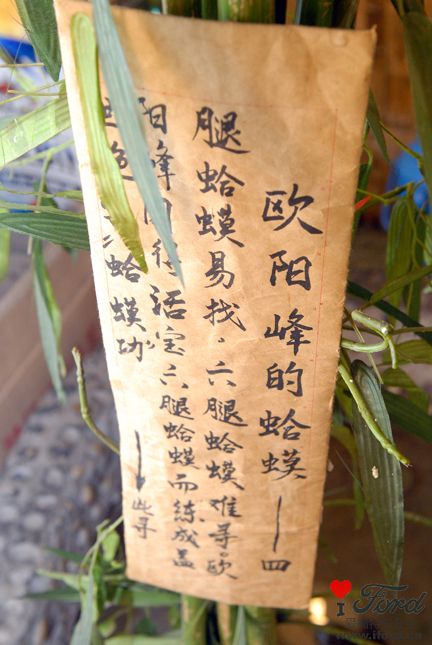 欧阳峰的蛤蟆——四
腿蛤蟆易找，六腿蛤蟆难寻。欧
阳峰得活宝六腿蛤蟆而练成盖
蛤蟆功”——此寻
I Ford
www.iford.cn